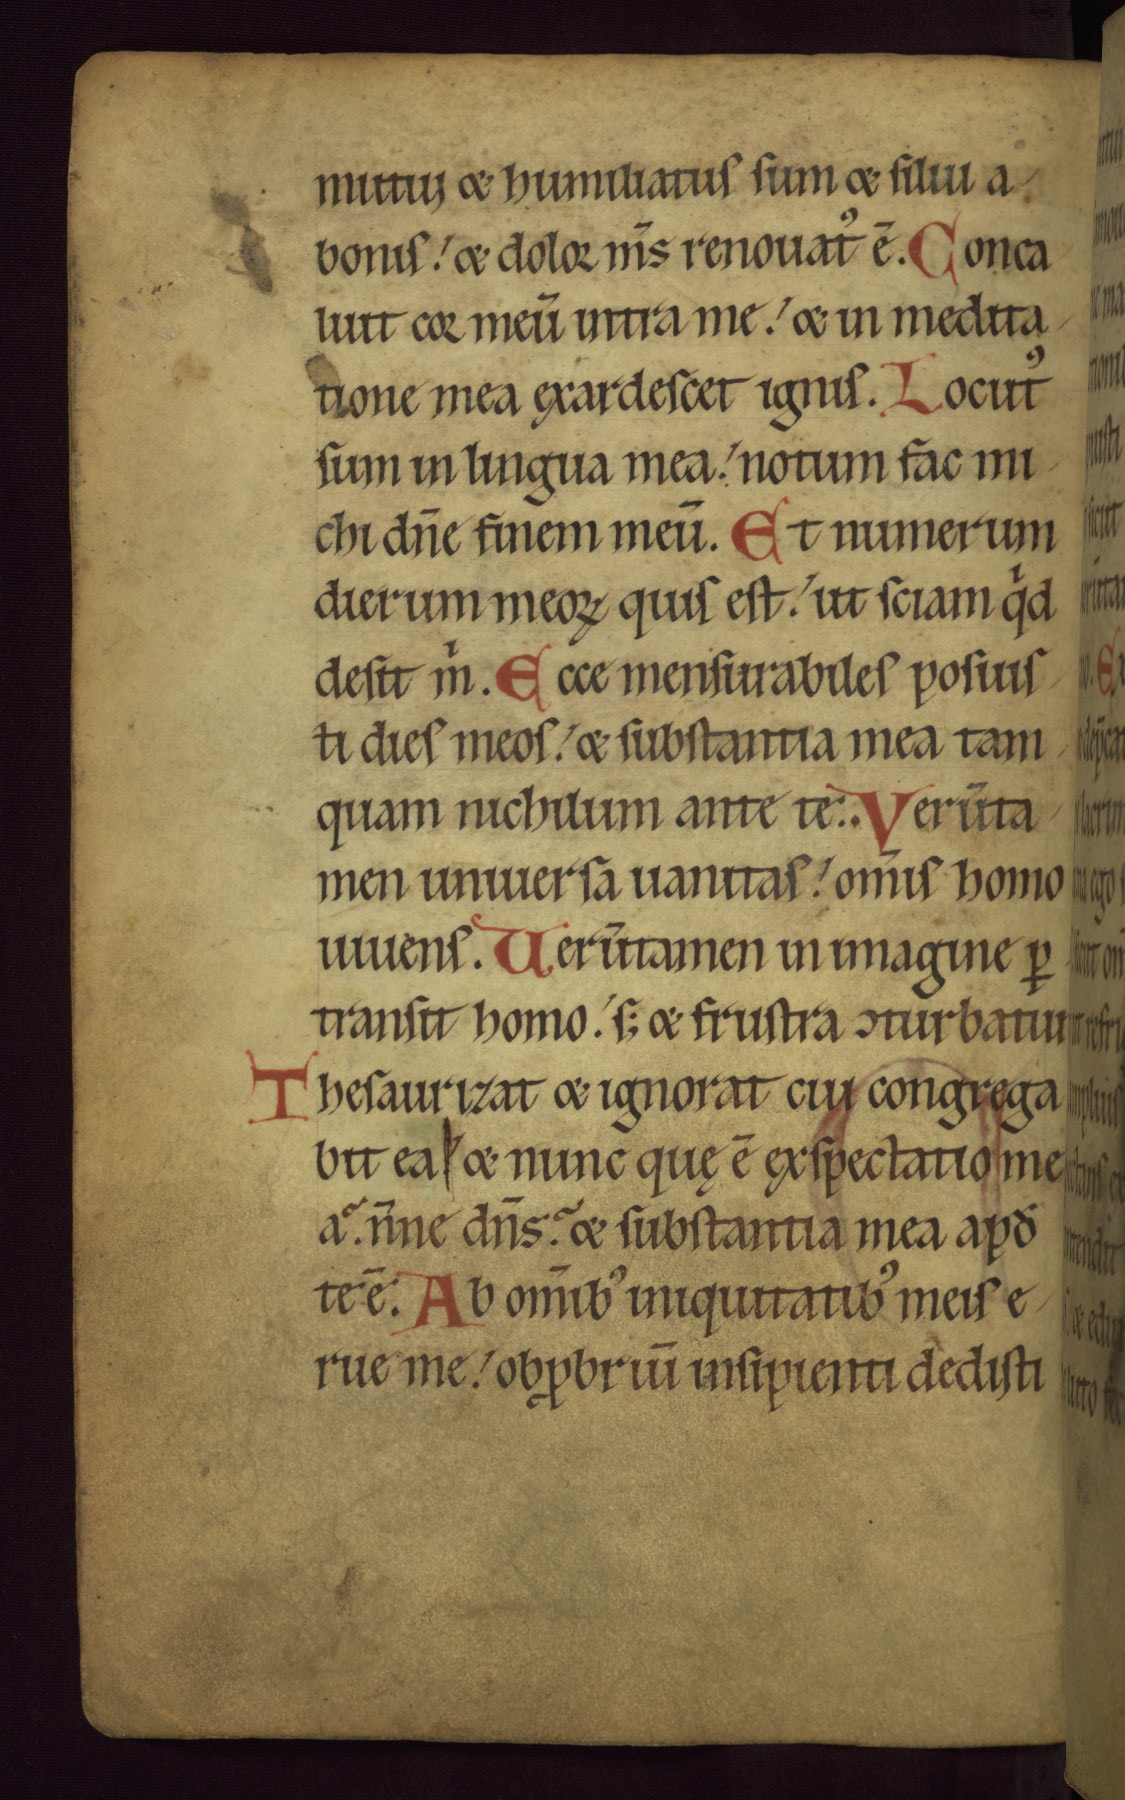 mutuı ⁊ humiliatus sum ⁊ silui a
bonis! ⁊ dolor m̄s renouatꝰ ē. Conca
luit cor meū intra me! ⁊ in medita
tione mea exardescet ignis. Locutꝰ
sum in lingua mea! notum fac mi
chi dn̄e finem meū. Et numerum
dierum meoꝝ quis est! ut sciam qd
desit m. Ecce mensurabiles posuis
ti dies meos! ⁊ substantia mea tam
quam nichilum ante te. Verūta
men uniuersa uanitas! om̄is homo
uiuens. Uerūtamen in imagine ꝑ
transit homo! s; ⁊ frustra ↄturbatur
Thesaurizat ⁊ ignorat cui congrega
bit ea ⁊ nunc quę ē exspectatio me
a. n̄ne dn̄s. ⁊ substantia mea apđ
te ē. Ab om̄ibꝰ iniquitatibꝰ meis e
rue me! obꝓbriū insipienti dedisti